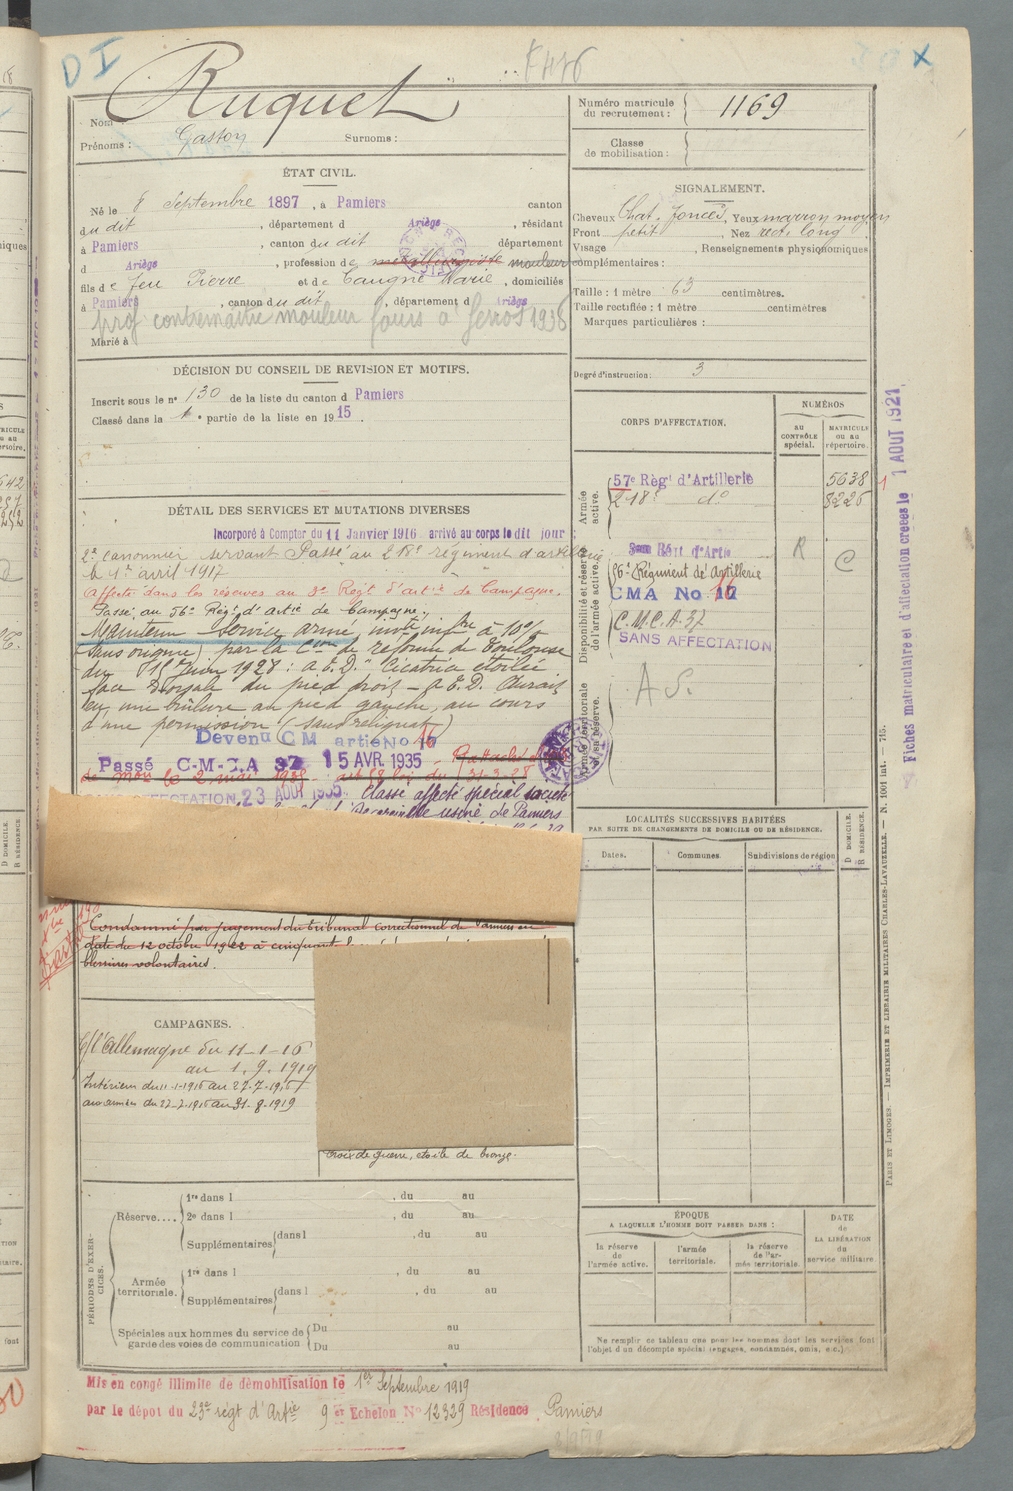 D I
Ruquet
Nom
Prénoms : Gaston Surnoms :
Numéro matricule du recrutement : 1169
Classe de mobilisation :
ÉTAT CIVIL.
Né le 8 Septembre 1897, à Pamiers canton
du dit, département d Ariège, résidant
à Pamiers, canton du dit département
d Ariège, profession de mouleur
fils de feu Pierre et de Marie, domiciliés
à Pamiers, canton du dit, département d Ariège
prof contremaitre mouleur 1938
Marié à
SIGNALEMENT.
Cheveux Chat. foncés, Yeux marron moyen
Front petit Nez rect. long
Visage , Renseignements physionomiques
complémentaires :
Taille : 1 mètre 63 centimètres.
Taille rectifiée : 1 mètre centimètres
Marques particulières :
Degré d'instruction : 3
DÉCISION DU CONSEIL DE REVISION ET MOTIFS.
Inscrit sous le n° 130 de la liste du canton d Pamiers
Classé dans la 1e partie de la liste en 1915.
DÉTAIL DES SERVICES ET MUTATIONS DIVERSES
Incorporé à Compter du 11 Janvier 1916 arrivé au corps le dit jour ;
2e canonnier servant Passé au 218e régiment d'artillerie
le 1er avril 1917
Affecté dans les réserves au Regt d'artie de Campagne.
Passé au 56e Regt d'artie de Campagne.
Maintenu Service armé, invté infre à 10%
(sans origine) par la Cion de réforme de Toulouse
du Juin 1928 : a E.D. " Cicatrice étoilée
face dorsale du pied droit - a E.D. Aurait
eu une brûlure au pied gauche, au cours
d'une permission
Devenu C M artie No 16
Passé C-M-C.A 37 15 AVR. 1935
le 2 mai 1938 art 58 loi du 31-3-28
AFFECTATION 23 AOUT 1935 Classé affecté spécial société
usine de Pamiers
Condamné par jugement du tribunal correctionnel de Pamiers en
date du 12 octobre 1922 à cinquante
blessures volontaires.
CAMPAGNES.
C/ l'Allemagne du 11-1-16
au 1.9.1919
Intérieur du 11-1-1916 au 27-7-1916
aux armées du 27-7-1916 au 31-8-1919
Croix de guerre, étoile de bronze.
CORPS D'AFFECTATION.
NUMÉROS
AU CONTRÔLE spécial.
MATRICULE ou au répertoire.
Armée active.
57e Régt d'Artillerie 5638
218e do 8226
Disponibilité et réserve de l'armée active.
56e Régiment de Artillerie
CMA No 16
C.M.C.A. 37
SANS AFFECTATION
R C
Armée territoriale et sa réserve.
A S.
LOCALITÉS SUCCESSIVES HABITÉES
PAR SUITE DE CHANGEMENTS DE DOMICILE OU DE RÉSIDENCE.
Dates. Communes. Subdivisions de région
D DOMICILE.
R RÉSIDENCE.
PÉRIODES D'EXERCICES.
Réserve.... 1re dans l , du au
2e dans l , du au
Supplémentaires dans l , du au
Armée territoriale. 1re dans l , du au
Supplémentaires dans l , du au
Spéciales aux hommes du service de garde des voies de communication Du au
Du au
ÉPOQUE
A LAQUELLE L'HOMME DOIT PASSER DANS :
la réserve de l'armée active.
l'armée territoriale.
la réserve de l'armée territoriale.
DATE de LA LIBÉRATION du service militaire.
Ne remplir ce tableau que pour les hommes dont les services font
l'objet d'un décompte spécial (engagés, condamnés, omis, etc.)
Mis en congé illimité de démobilisation le 1er Septembre 1919
par le dépôt du 23e régt d'Artie 9e Echelon No 12329 Résidence Pamiers
Fiches matriculaire et d'affectation créées le 1 AOUT 1921.
PARIS ET LIMOGES. — IMPRIMERIE ET LIBRAIRIE MILITAIRES CHARLES-LAVAUZELLE. — N. 1001 int. — 715.